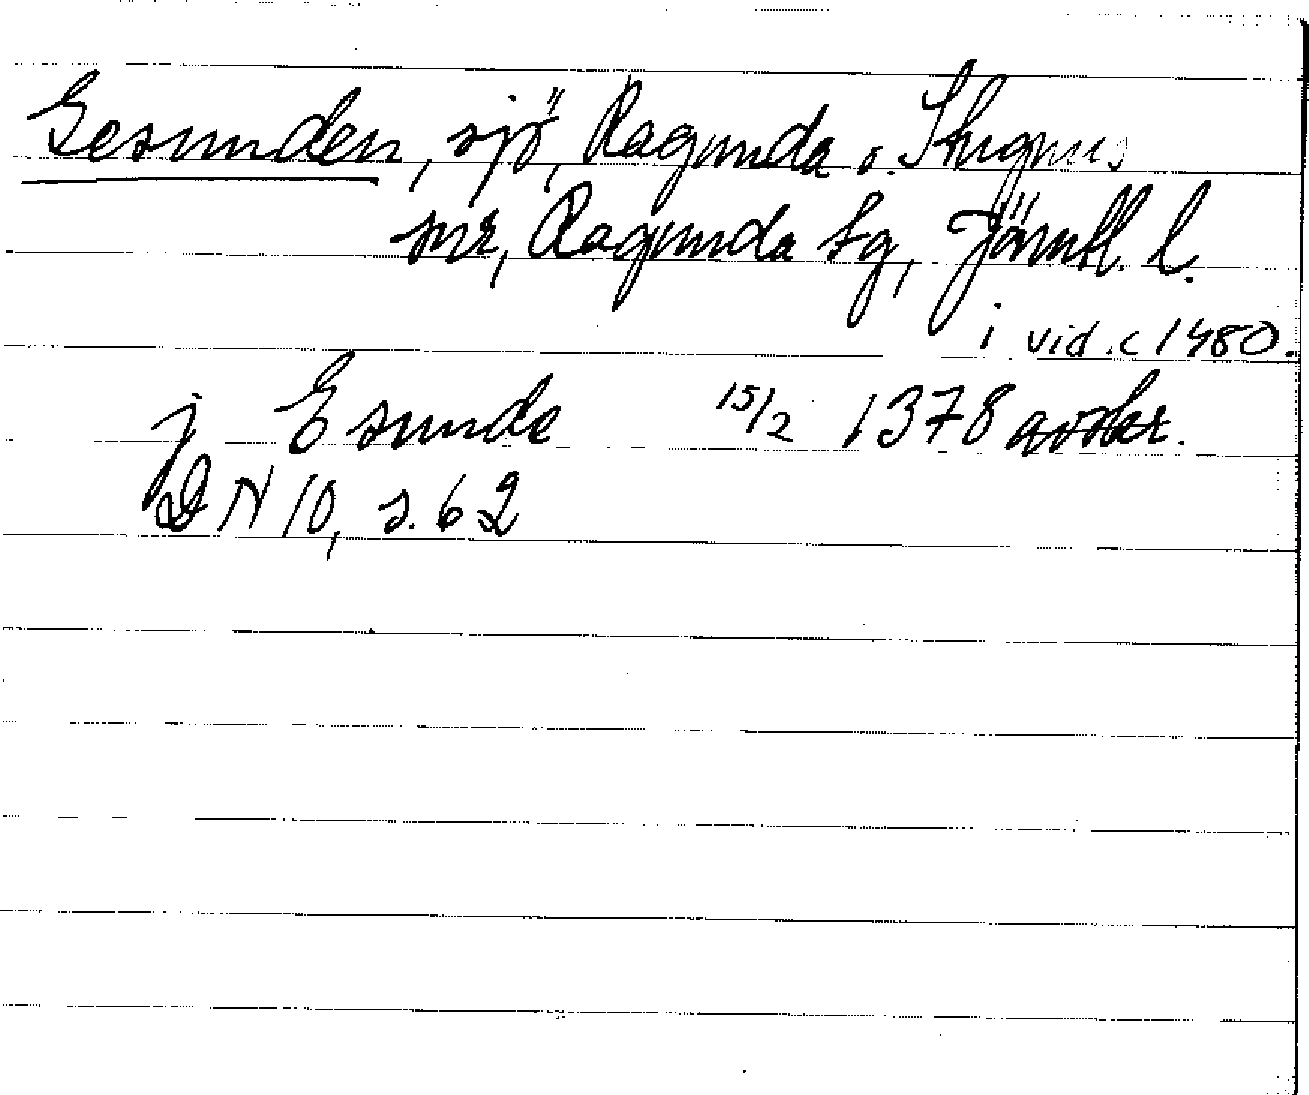 Gesunden, sjö, Ragunda o. Stuguns
snr, Ragunda tg, Jämtl. l.
i vid. c 1480.
j Esunde 15/2 1378 avskr.
DN 10, s. 62